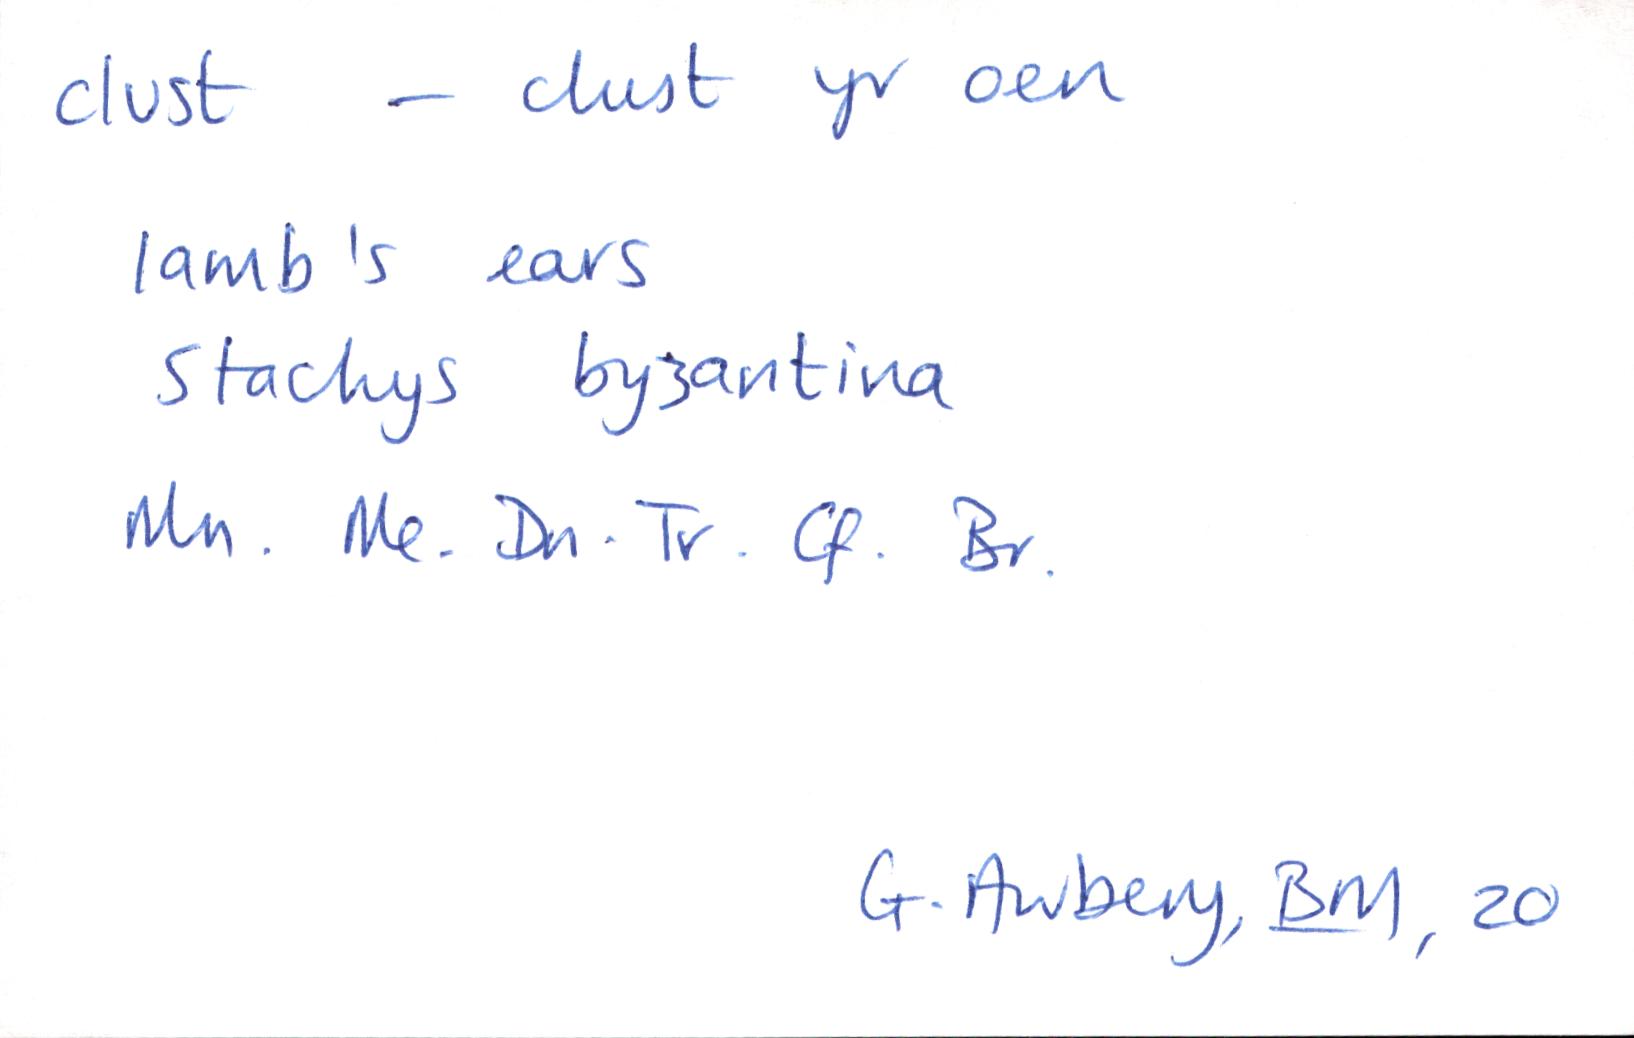 clust - clust yr oen
lamb's ears
Stachys byzantina
Mn. Me. Dn. Tr. Cf. Br.
G. Awbery, BM, 20